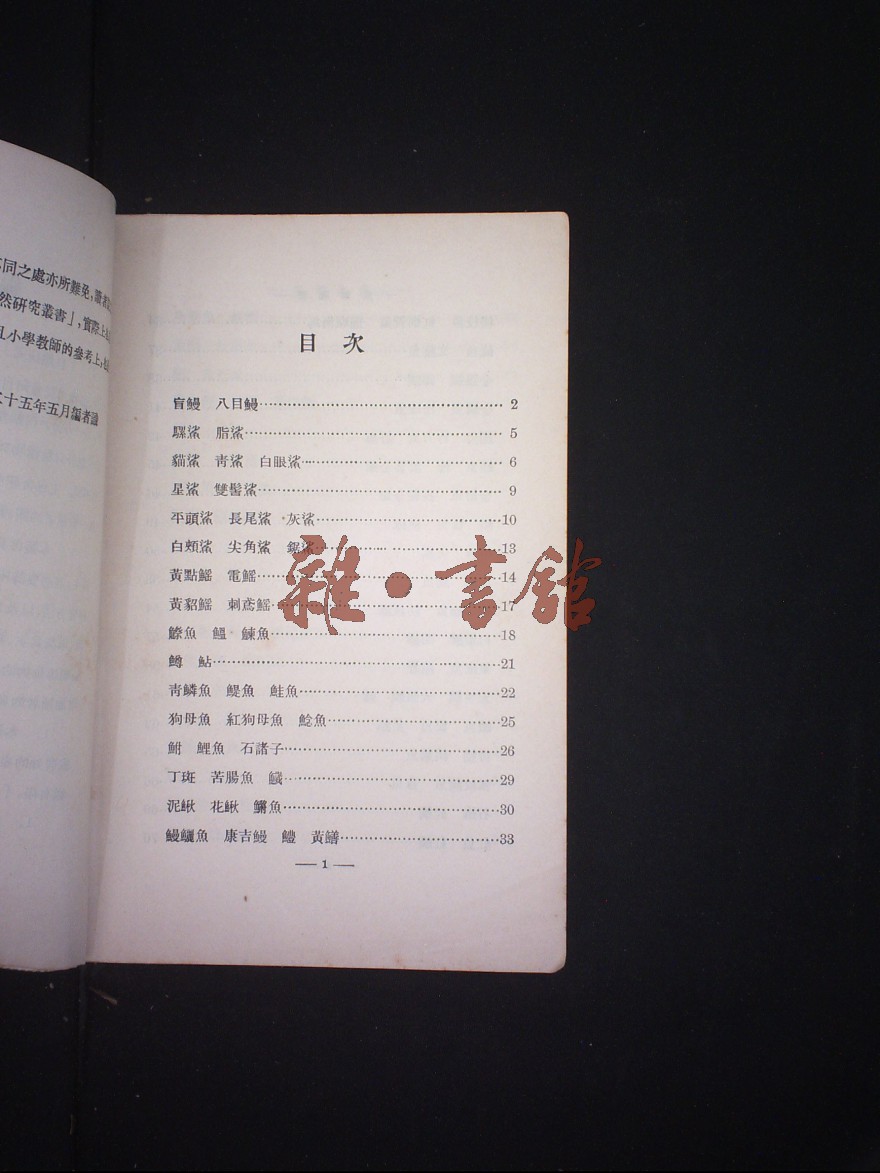 同之處亦所難免,
然研究叢書」,實際上
小學教師的參考上,
十五年五月編者識
目次
盲鰻 八目鰻 2
騾鯊 脂鯊 5
貓鯊 靑鯊 白眼鯊 6
星鯊 雙髻鯊 9
平頭鯊 長尾鯊 灰鯊 10
白頰鯊 尖角鯊 鋸鯊 13
黃點鰩 電鰩 14
黃貂鰩 刺鳶鰩 17
鰶魚 鰮 鰊魚 18
鱒 鮎 21
靑鱗魚 鯷魚 鮭魚 22
狗母魚 紅狗母魚 鯰魚 25
鮒 鯉魚 石諸子 26
丁斑 苦腸魚 29
泥鰍 花鰍 30
鰻鱺魚 康吉鰻 鱧 黃鱔 33
— 1 —
雜·書館